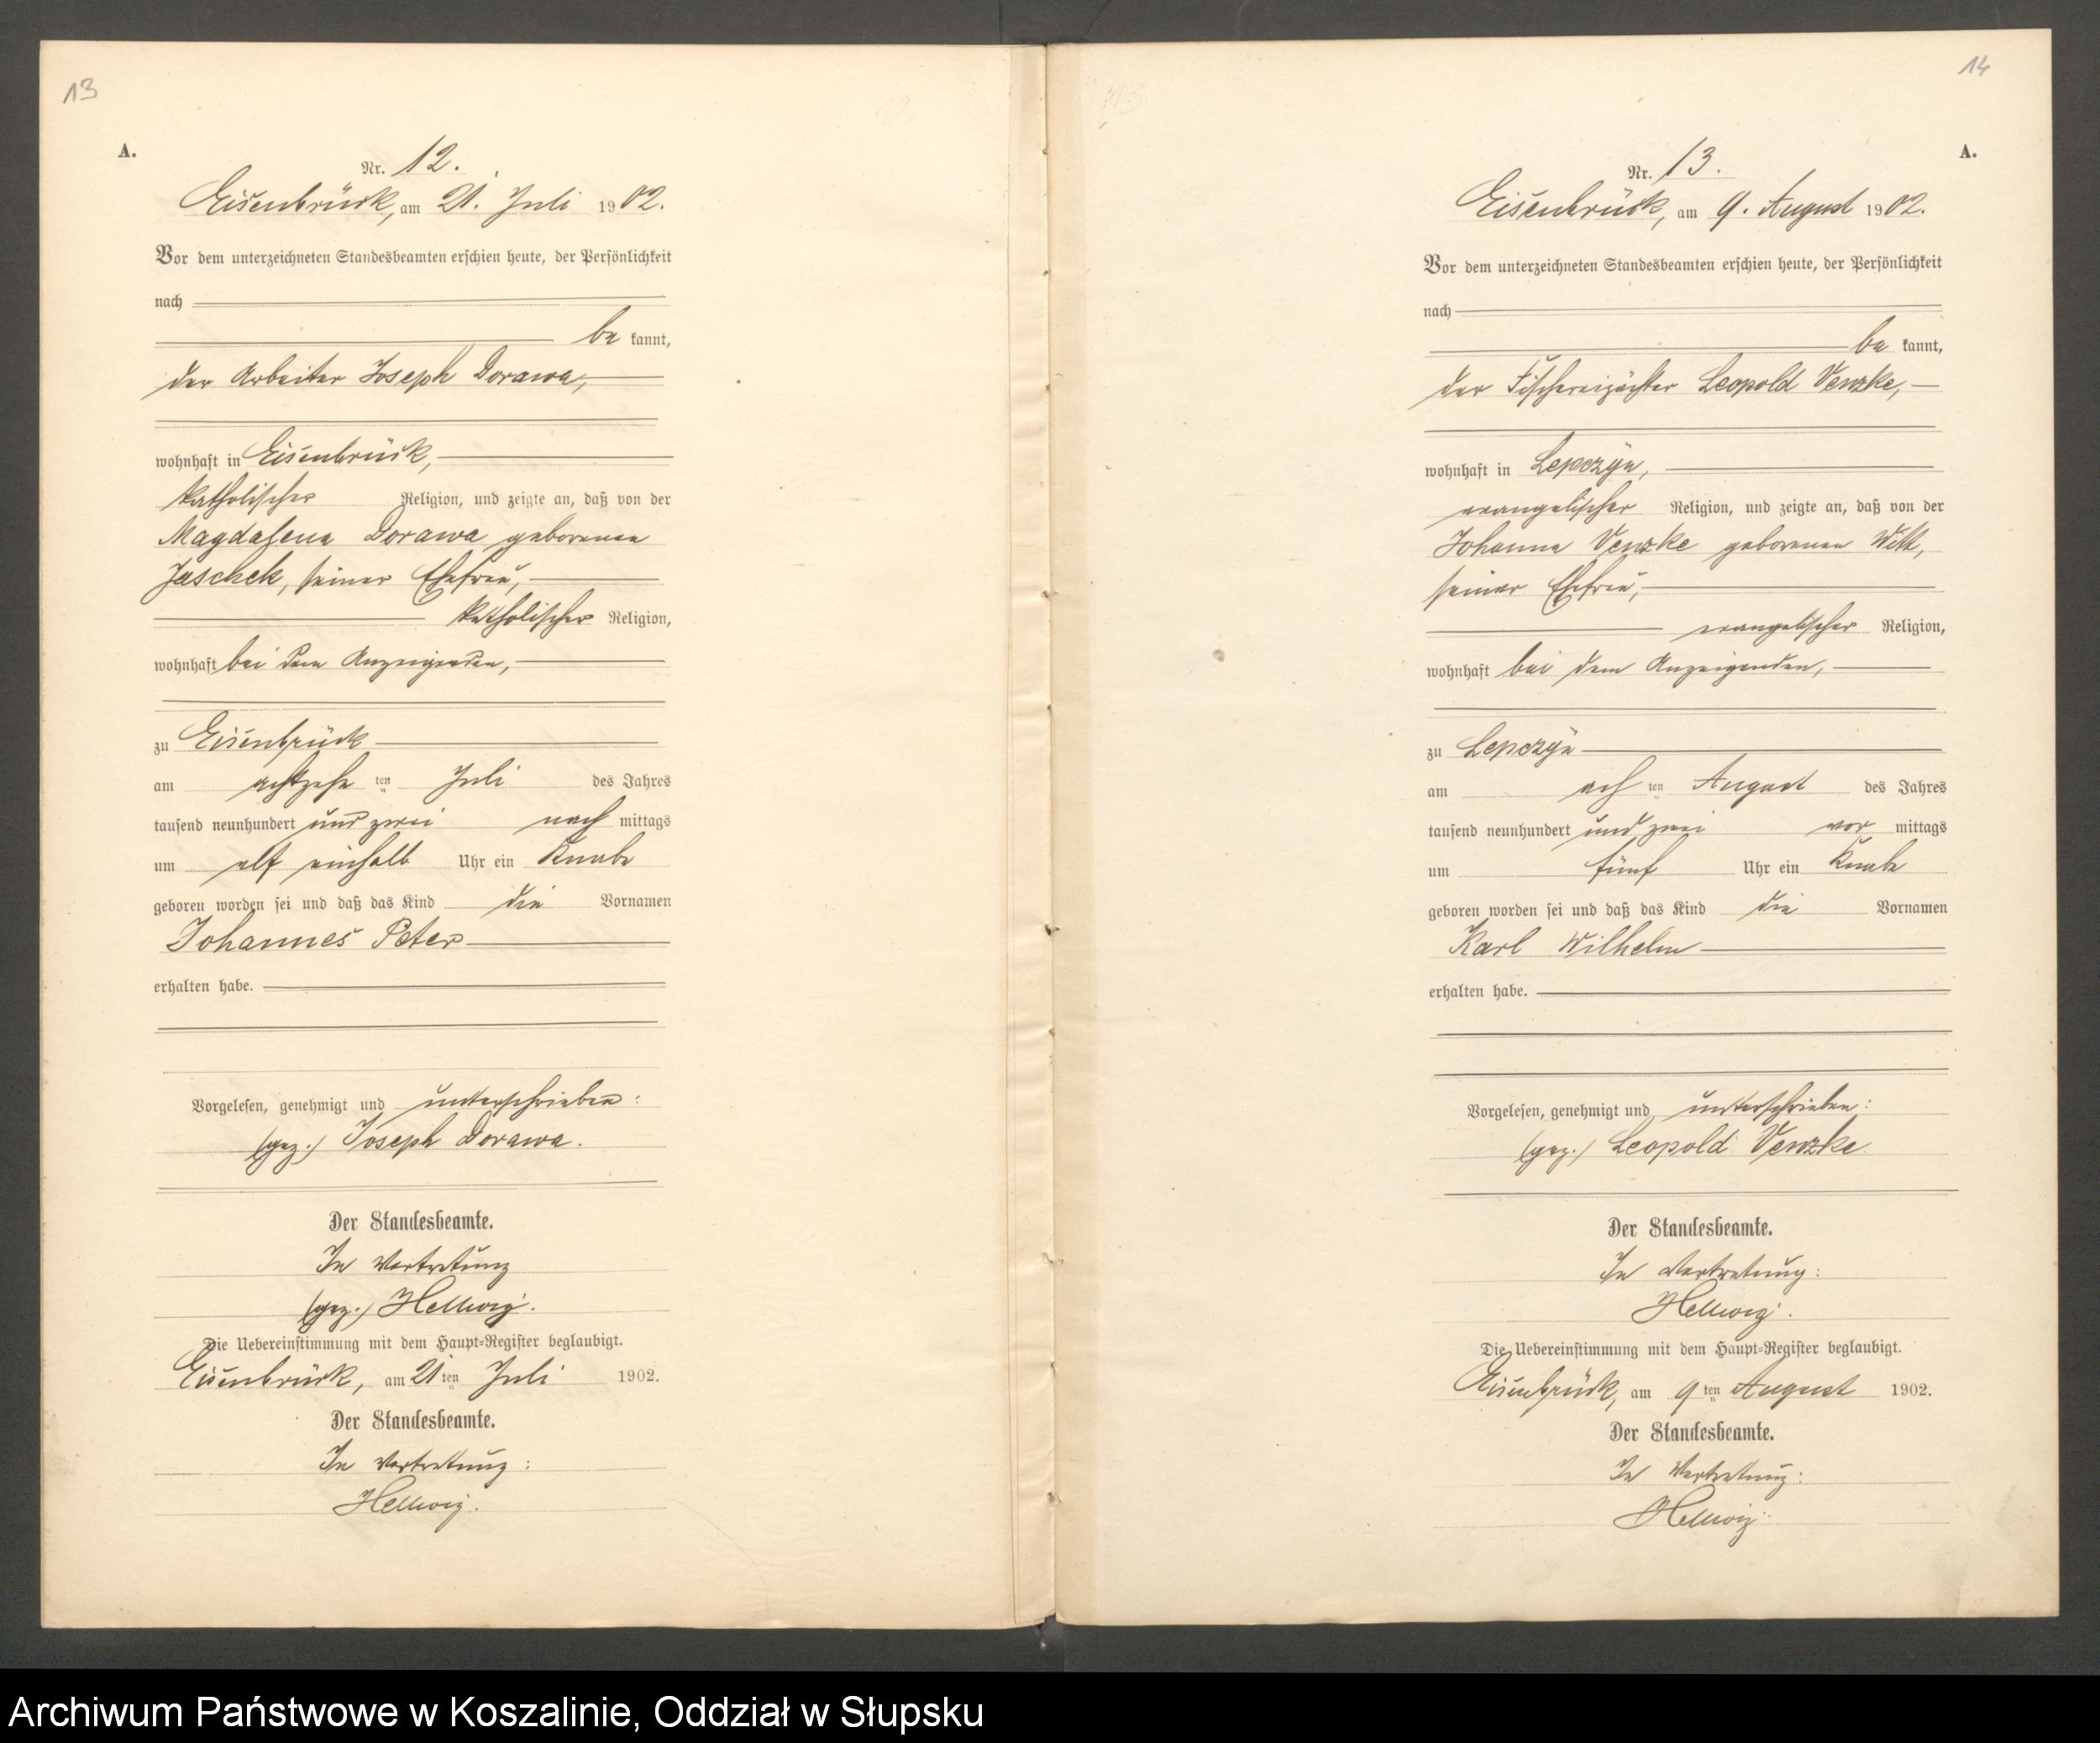 13
A.
Nr. 12.
Eisenbrück, am 21. Juli 1902.
Vor dem unterzeichneten Standesbeamten erschien heute, der Persönlichkeit
nach
be kannt,
der Arbeiter Joseph Dorawa,
wohnhaft in Eisenbrück,
katholischer Religion, und zeigte an, daß von der
Magdalena Dorawa geborenen
Jaschek, seiner Ehefrau,
katholischer Religion,
wohnhaft bei dem Anzeigenden,
zu Eisenbrück
am achtzehn ten Juli des Jahres
tausend neunhundert und zwei nach mittags
um elf einhalb Uhr ein Knabe
geboren worden sei und daß das Kind die Vornamen
Johannes Peter
erhalten habe.
Vorgelesen, genehmigt und unterschrieben:
(gez.) Joseph Dorawa.
Der Standesbeamte.
In Vertretung
(gez.) Hellwig.
Die Uebereinstimmung mit dem Haupt-Register beglaubigt.
Eisenbrück, am 21ten Juli 1902.
Der Standesbeamte.
In Vertretung:
Hellwig.
14
A.
Nr. 13.
Eisenbrück, am 9. August 1902.
Vor dem unterzeichneten Standesbeamten erschien heute, der Persönlichkeit
nach
be kannt,
der Fischereipächter Leopold Venzke,
wohnhaft in Lepczyn,
evangelischer Religion, und zeigte an, daß von der
Johanna Venzke geborenen Witt,
seiner Ehefrau,
evangelischer Religion,
wohnhaft bei dem Anzeigenden,
zu Lepczyn
am ach ten August des Jahres
tausend neunhundert und zwei vor mittags
um fünf Uhr ein Knabe
geboren worden sei und daß das Kind die Vornamen
Karl Wilhelm
erhalten habe.
Vorgelesen, genehmigt und unterschrieben:
(gez.) Leopold Venzke
Der Standesbeamte.
In Vertretung:
Hellwig.
Die Uebereinstimmung mit dem Haupt-Register beglaubigt.
Eisenbrück, am 9ten August 1902.
Der Standesbeamte.
In Vertretung:
Hellwig
Archiwum Państwowe w Koszalinie, Oddział w Słupsku